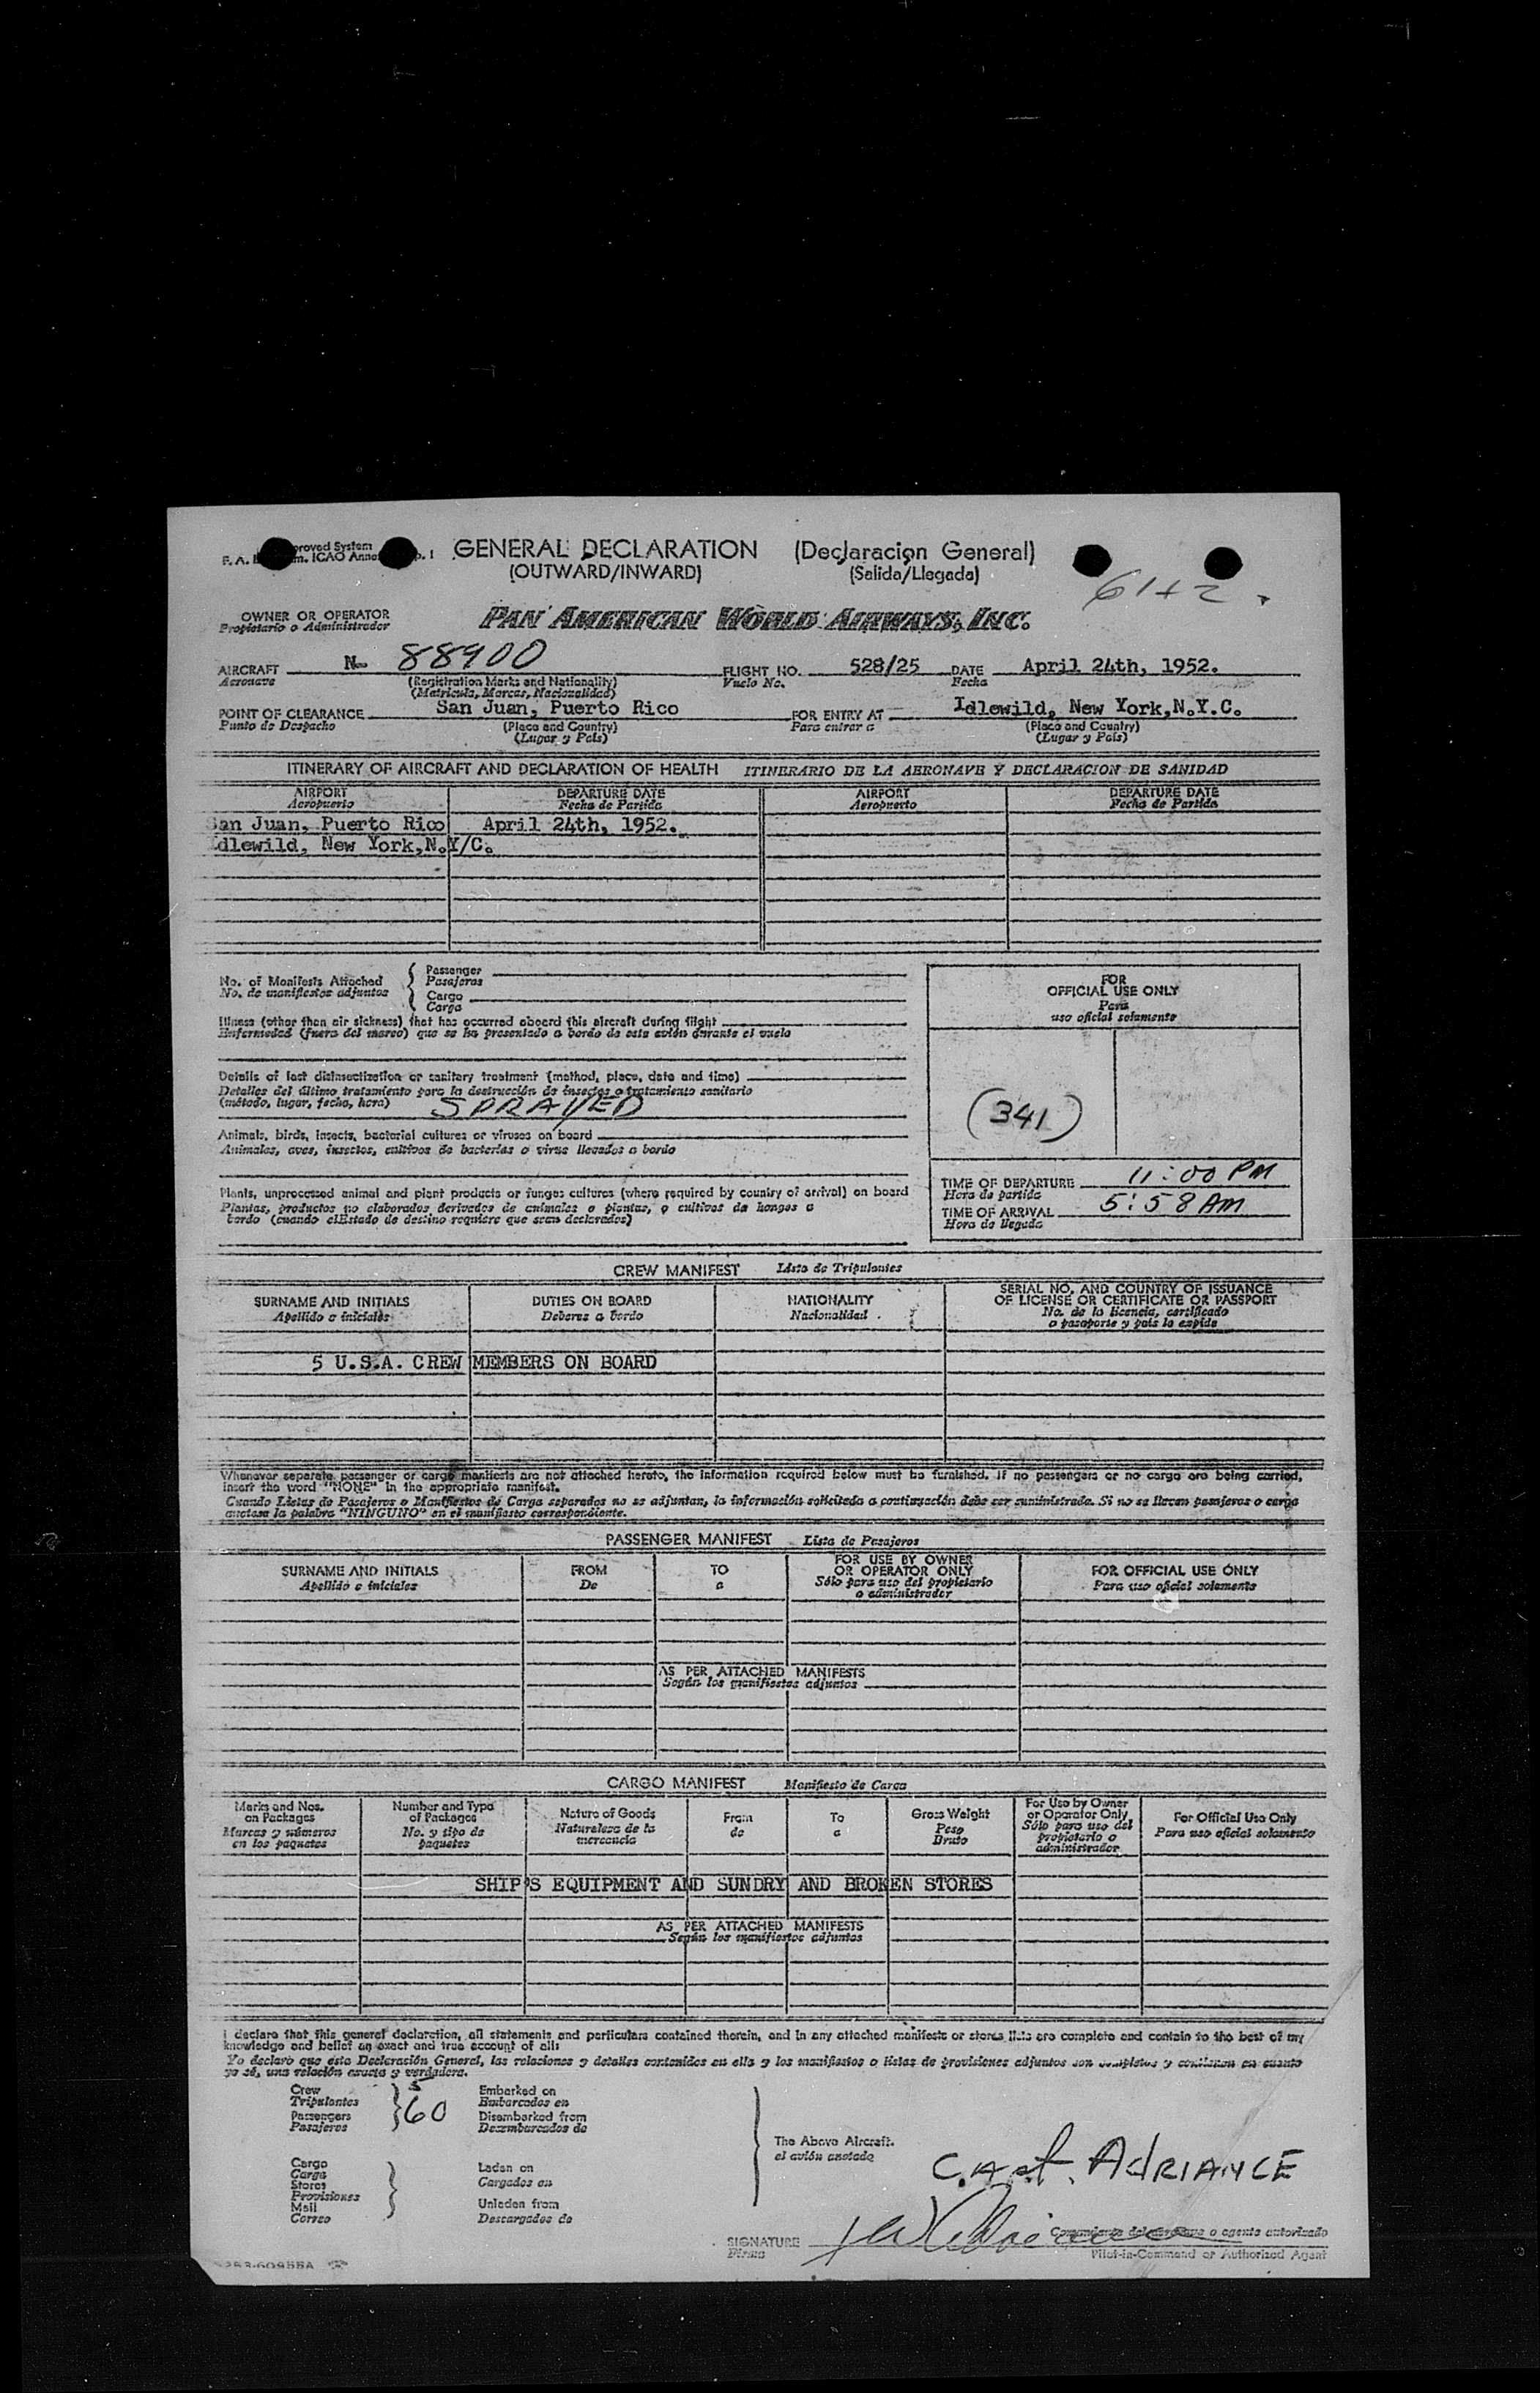 GENERAL DECLARATION (Declaracion General)
(OUTWARD/INWARD) (Salida/Llegada)
61+2.
OWNER OR OPERATOR PAN AMERICAN WORLD AIRWAYS, INC.
Propietario o Administrador
AIRCRAFT N- 88900 FLIGHT NO. 528/25 DATE April 24th, 1952.
Aeronave (Registration Marks and Nationality) Vuelo No. Fecha
(Matricula, Marcas, Nacionalidad)
POINT OF CLEARANCE San Juan, Puerto Rico FOR ENTRY AT Idlewild, New York,N.Y.C.
Punto de Despacho (Place and Country) Para entrar a (Place and Country)
(Lugar y País) (Lugar y País)
ITINERARY OF AIRCRAFT AND DECLARATION OF HEALTH ITINERARIO DE LA AERONAVE Y DECLARACION DE SANIDAD
AIRPORT DEPARTURE DATE AIRPORT DEPARTURE DATE
Aeropuerto Fecha de Partida Aeropuerto Fecha de Partida
San Juan, Puerto Rico April 24th, 1952.
Idlewild, New York,N.Y/C.
No. of Manifests Attached Passenger
No. de manifiestos adjuntos Pasajeros
Cargo
Carga
Illness (other than air sickness) that has occurred aboard this aircraft during flight
Enfermedad (fuera del mareo) que se ha presentado a bordo de este avión durante el vuelo
Details of last disinsectization or sanitary treatment (method, place, date and time)
Detalles del último tratamiento para la destrucción de insectos o tratamiento sanitario
(método, lugar, fecha, hora) SPRAYED
Animals, birds, insects, bacterial cultures or viruses on board
Animales, aves, insectos, cultivos de bacterias o virus llevados a bordo
Plants, unprocessed animal and plant products or fungus cultures (where required by country of arrival) on board
Plantas, productos no elaborados derivados de animales o plantas, o cultivos de hongos a
bordo (cuando el Estado de destino requiere que sean declarados)
FOR
OFFICIAL USE ONLY
Para
uso oficial solamente
(341)
TIME OF DEPARTURE 11:00 PM
Hora de partida
TIME OF ARRIVAL 5:58 AM
Hora de llegada
CREW MANIFEST Lista de Tripulantes
SURNAME AND INITIALS DUTIES ON BOARD NATIONALITY SERIAL NO. AND COUNTRY OF ISSUANCE
OF LICENSE OR CERTIFICATE OR PASSPORT
Apellido e iniciales Deberes a bordo Nacionalidad No. de la licencia, certificado
o pasaporte y país lo expide
5 U.S.A. CREW MEMBERS ON BOARD
Whenever separate passenger or cargo manifests are not attached hereto, the information required below must be furnished. If no passengers or no cargo are being carried,
insert the word "NONE" in the appropriate manifest.
Cuando Listas de Pasajeros o Manifiestos de Carga separados no se adjuntan, la información solicitada a continuación debe ser suministrada. Si no se llevan pasajeros o carga
anótese la palabra "NINGUNO" en el manifiesto correspondiente.
PASSENGER MANIFEST Lista de Pasajeros
SURNAME AND INITIALS FROM TO FOR USE BY OWNER FOR OFFICIAL USE ONLY
OR OPERATOR ONLY
Apellido e iniciales De a Sólo para uso del propietario Para uso oficial solamente
o administrador
AS PER ATTACHED MANIFESTS
Según los manifiestos adjuntos
CARGO MANIFEST Manifiesto de Carga
Marks and Nos. Number and Type Nature of Goods From To Gross Weight For Use by Owner For Official Use Only
on Packages of Packages or Operator Only
Marcas y números No. y tipo de Naturaleza de la de a Peso Sólo para uso del Para uso oficial solamente
en los paquetes paquetes mercancía Bruto propietario o
administrador
SHIP'S EQUIPMENT AND SUNDRY AND BROKEN STORES
AS PER ATTACHED MANIFESTS
Según los manifiestos adjuntos
I declare that this general declaration, all statements and particulars contained therein, and in any attached manifests or stores lists are complete and contain to the best of my
knowledge and belief an exact and true account of all:
Yo declaro que esta Declaración General, las relaciones y detalles contenidos en ella y los manifiestos o listas de provisiones adjuntos son completos y contienen en cuanto
yo sé, una relación exacta y verdadera.
Crew 5 Embarked on
Tripulantes Embarcados en
Passengers 60 Disembarked from
Pasajeros Desembarcados de
The Above Aircraft.
el avión anotado
Cargo Laden on
Carga Cargados en
Stores
Provisiones
Mail Unladen from
Correo Descargados de
Capt. ADRIANCE
SIGNATURE Comandante del aeronave o agente autorizado
Firma Pilot-in-Command or Authorized Agent